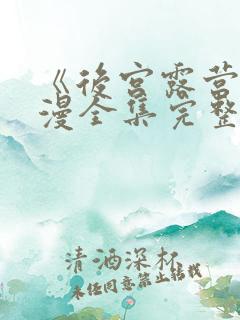 《後宮露营
漫全集完整
清酒深杯
未经同意禁止转载